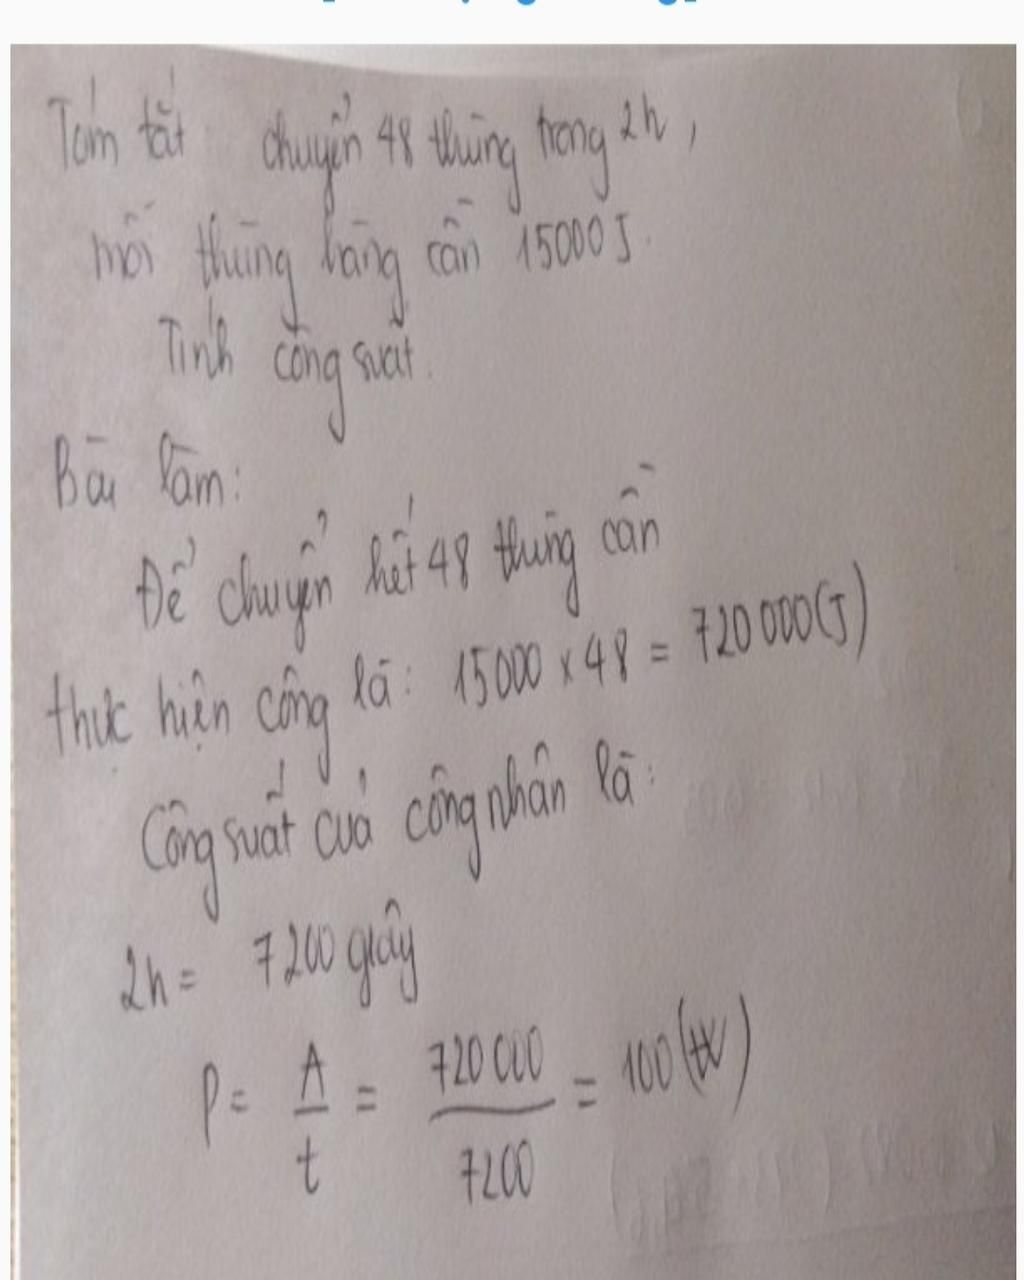 Tóm tắt chuyển 48 thùng trong 2h,
mỗi thùng hàng cần 15000J.
Tính công suất.
Bài làm:
Để chuyển hết 48 thùng cần
thực hiện công là: 15000 x 48 = 720 000(J)
Công suất của công nhân là:
2h = 7200 giây
P = A/t = 720 000/7200 = 100 (W)